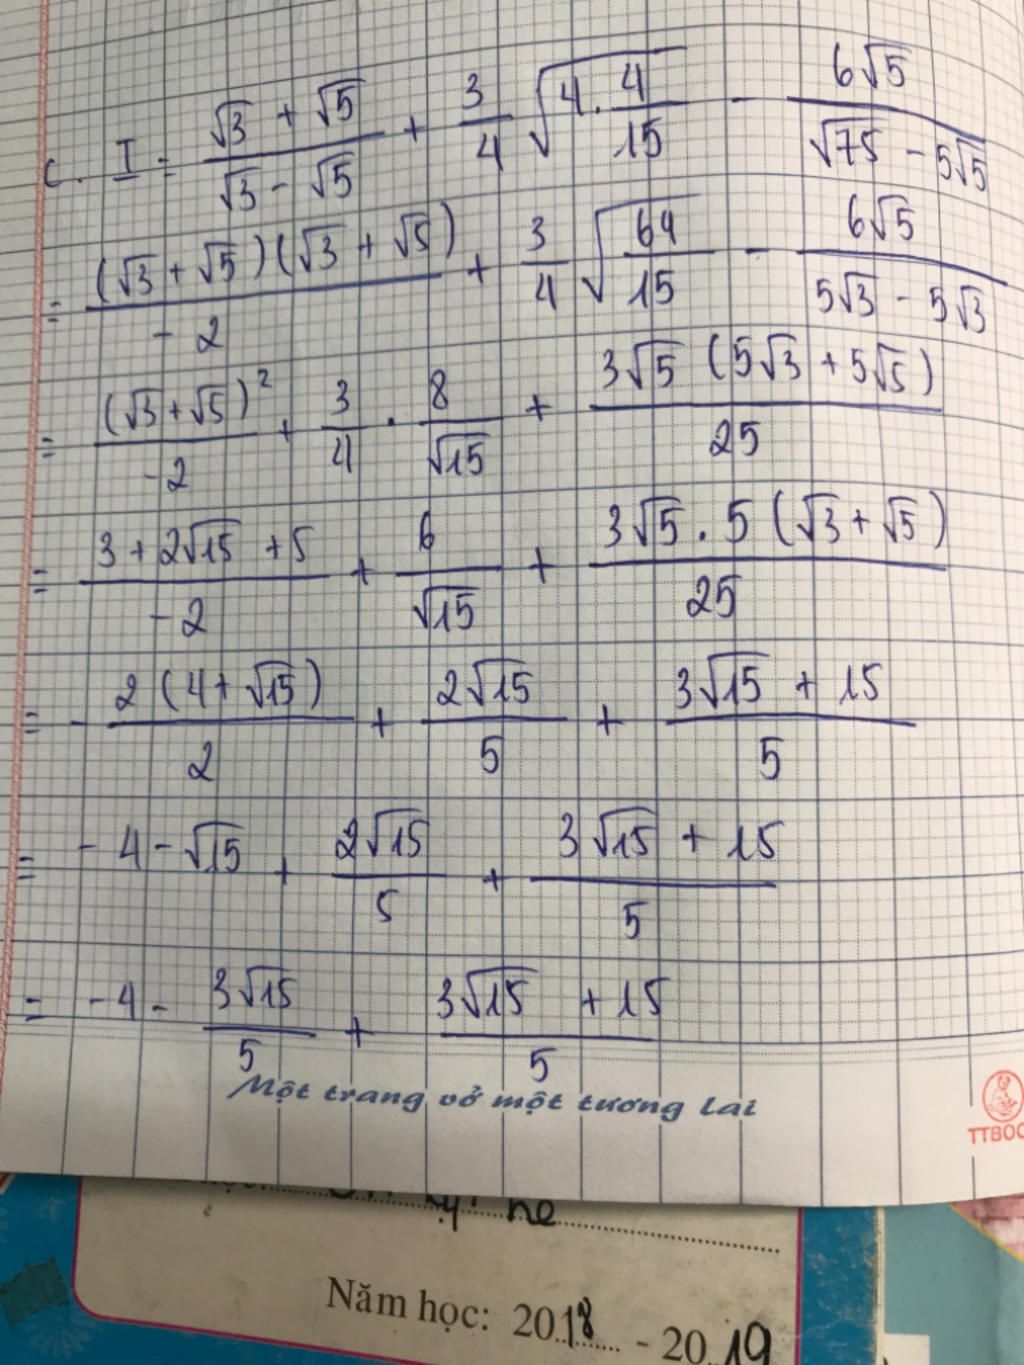 c. I = (√3 + √5)/(√3 - √5) + 3/4 √(4 . 4/15) - 6√5/(√75 - 5√5)
= (√3 + √5)(√3 + √5)/-2 + 3/4 √(64/15) - 6√5/(5√3 - 5√3)
= (√3 + √5)²/-2 + 3/4 . 8/√15 + 3√5 (5√3 + 5√5)/25
= (3 + 2√15 + 5)/-2 + 6/√15 + 3√5 . 5 (√3 + √5)/25
= - 2(4 + √15)/2 + 2√15/5 + (3√15 + 15)/5
= -4 - √15 + 2√15/5 + (3√15 + 15)/5
= -4 - 3√15/5 + (3√15 + 15)/5
Một trang vở một tương lai
TTBOO
Năm học: 2018 - 2019